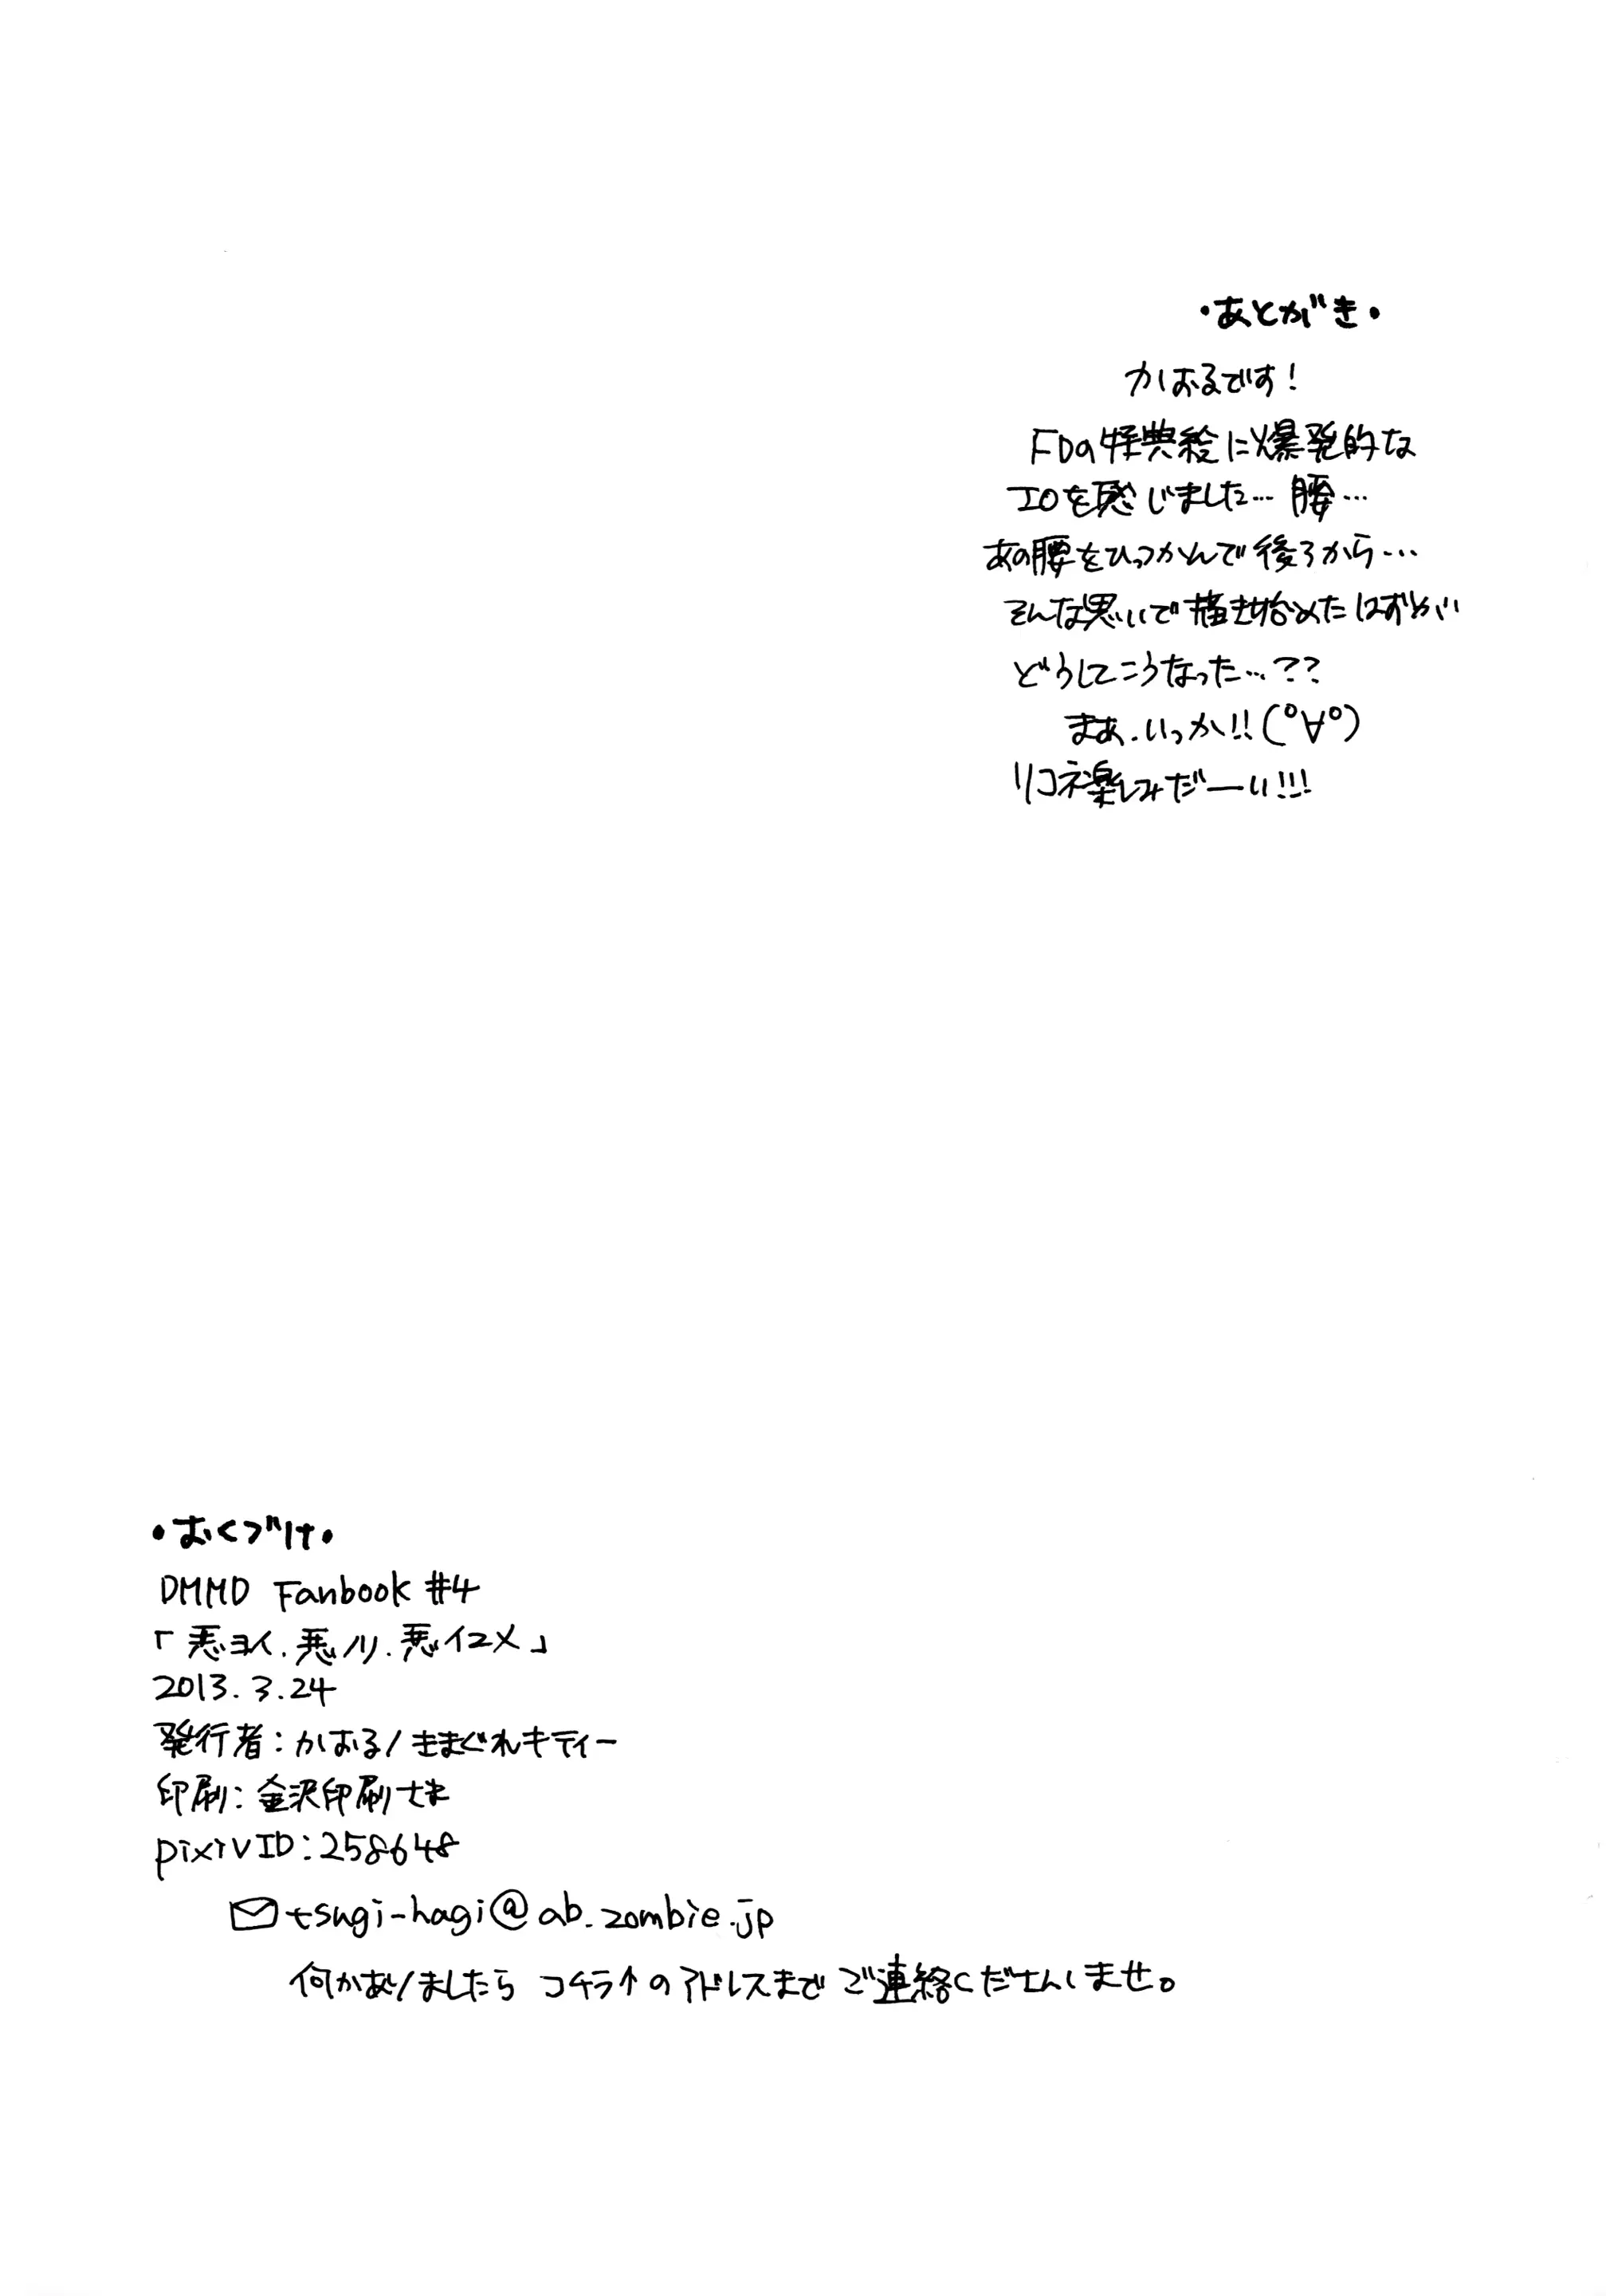 ・あとがき・
かおるです!
FDの特典絵に爆発的な
エロを感じました…腰…
あの腰をひっつかんで後ろから…
そんな思いで描き始めたはずが
どうしてこうなった…??
まぁ、いっか!!(°∀°)
リコネ楽しみだーい!!!
・おくづけ・
DMMD Fanbook #4
「悪ヨイ、悪ノリ、悪イユメ」
2013.3.24
発行者:かおる/きまぐれキティー
印刷:金沢印刷さま
pixivID:258648
tsugi-hagi@ab.zombie.jp
何かありましたら コチラ↑のアドレスまで ご連絡くださいませ。